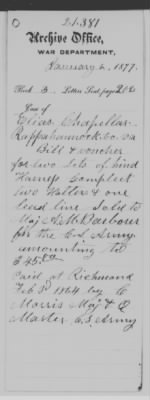 21.381
Archive Office,
WAR DEPARTMENT,
January 2, 1877.
Book 3. Letters Sent, page 206
Case of
Elias Chapeller
Rappahannock co. Va
Bill & voucher
for two Sets of hind
Harness Complete
two Halters & one
lead line. Sold to
Maj A. M. Barbour
for the C.S. Army
amounting to
$45.00
paid at Richmond
Feb 3d 1864 by C
Morris Maj & Q
Master C.S. Army